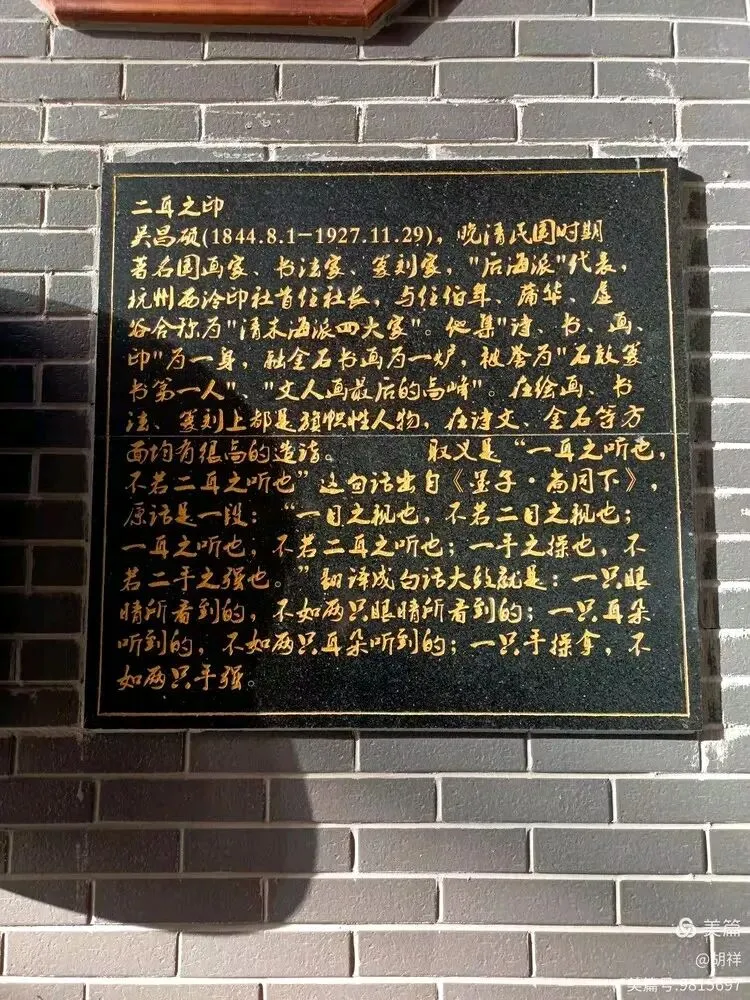 二耳之印
吴昌硕(1844.8.1-1927.11.29)，晚清民国时期
著名国画家、书法家、篆刻家，"后海派"代表，
杭州西泠印社首任社长，与任伯年、蒲华、虚
谷合称为"清末海派四大家"。他集"诗、书、画、
印"为一身，融金石书画为一炉，被誉为"石鼓篆
书第一人"、"文人画最后的高峰"。在绘画、书
法、篆刻上都是旗帜性人物，在诗文、金石等方
面均有很高的造诣。 取义是“一耳之听也，
不若二耳之听也”这句话出自《墨子·尚同下》，
原话是一段：“一目之视也，不若二目之视也；
一耳之听也，不若二耳之听也；一手之操也，不
若二手之强也。”翻译成白话大致就是：一只眼
睛所看到的，不如两只眼睛所看到的；一只耳朵
听到的，不如两只耳朵听到的；一只手操拿，不
如两只手强。
美篇
@胡祥
美篇号:9815697